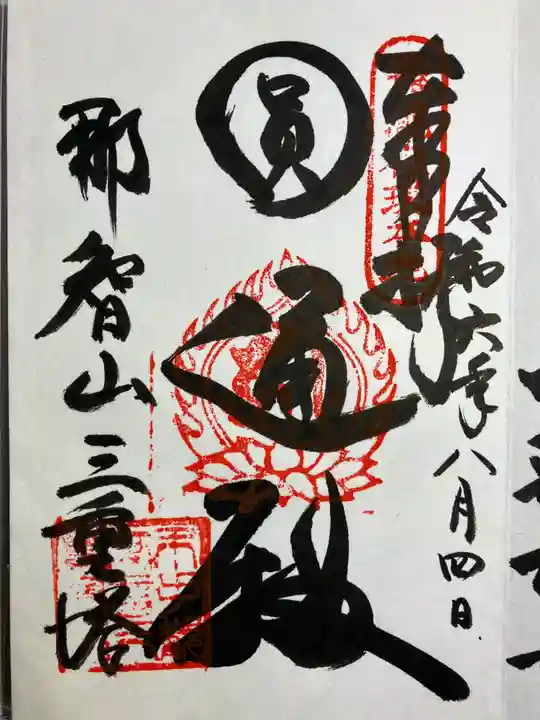 奉拝
令和六年八月四日
圓通殿
那智山三重塔